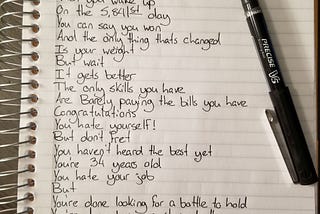 you wake up
On the 5,841st day
You can say you won
And the only thing thats changed
Is your weight
But wait
It gets better
The only skills you have
Are Barely paying the bills you have
Congratulations
You hate yourself!
But don't fret
You haven't heard the best yet
You're 34 years old
You hate your job
But
You're done looking for a bottle to hold
PRECISE V5